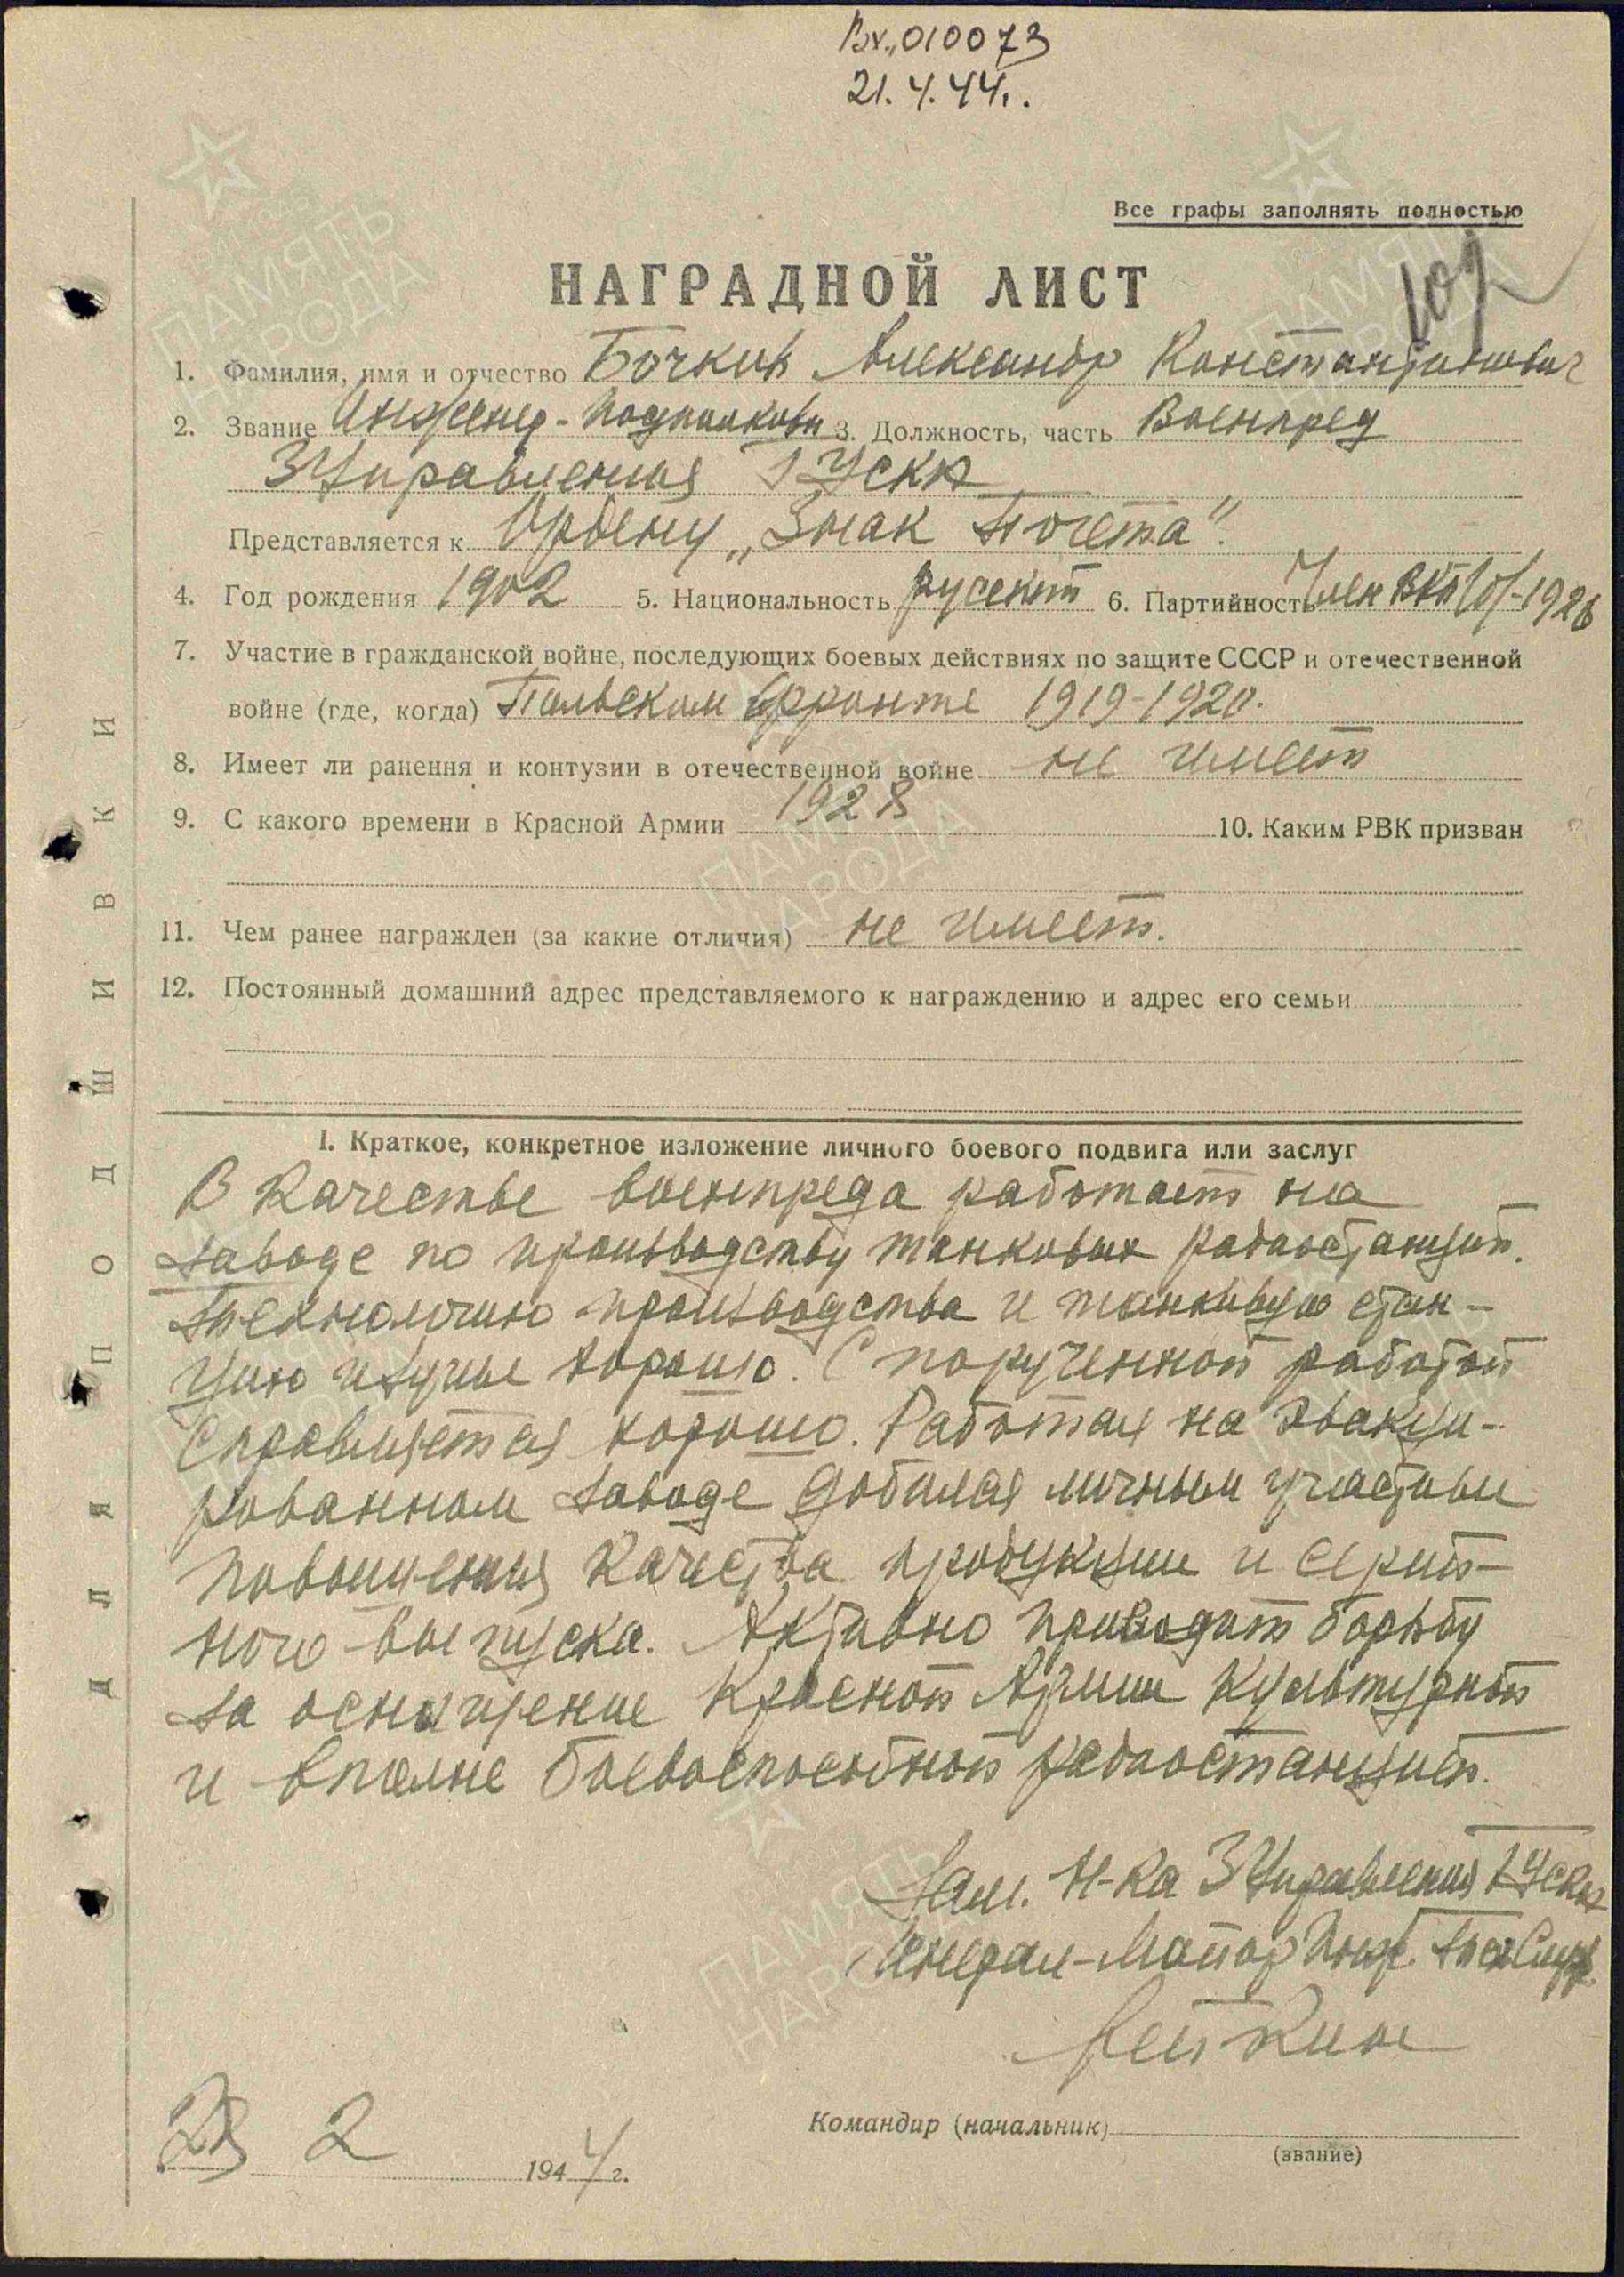 Вх. 010073
21.4.44.
Все графы заполнять полностью
НАГРАДНОЙ ЛИСТ
1. Фамилия, имя и отчество Бочков Александр Константинович
2. Звание Инженер-подполковн 3. Должность, часть Военпред
3 Управления ГУСКА
Представляется к Ордену „Знак Почета".
4. Год рождения 1902 5. Национальность русский 6. Партийность Член ВКП/б/-1926
7. Участие в гражданской войне, последующих боевых действиях по защите СССР и отечественной
войне (где, когда) Польском фронте 1919-1920.
8. Имеет ли ранения и контузии в отечественной войне не имеет
9. С какого времени в Красной Армии 1928 10. Каким РВК призван
11. Чем ранее награжден (за какие отличия) не имеет.
12. Постоянный домашний адрес представляемого к награждению и адрес его семьи
I. Краткое, конкретное изложение личного боевого подвига или заслуг
В качестве военпреда работает на
заводе по производству танковых радиостанций.
Технологию производства и танковую стан-
цию изучил хорошо. С порученной работой
справляется хорошо. Работая на эвакуи-
рованном заводе добился личным участием
повышения качества продукции и серий-
ного выпуска. Активно проводит борьбу
за оснащение Красной Армии культурной
и вполне боевоспособной радиостанцией.
Зам. Н-ка 3 Управления ГУСКА
Генерал-Майор Инж. Тех Служ.
23 2 1944 г.
Командир (начальник)
(звание)
ДЛЯ ПОДШИВКИ
ПАМЯТЬ
НАРОДА